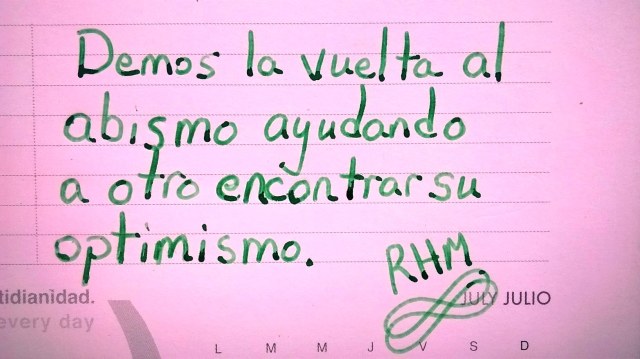 Demos la vuelta al
abismo ayudando
a otro encontrar su
optimismo.
RHM
tidianidad.
every day
JULY JULIO
L M M J V S D